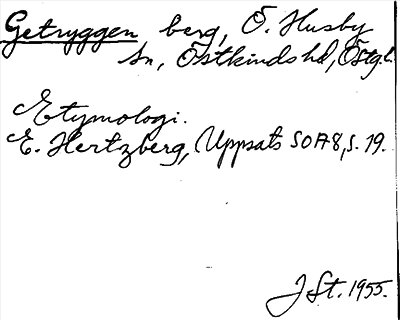 Getryggen, berg, Ö. Husby
sn, Östkinds hd, Östg.l.
Etymologi.
E. Hertzberg, Uppsats SOA8, s. 19.
J St. 1955.